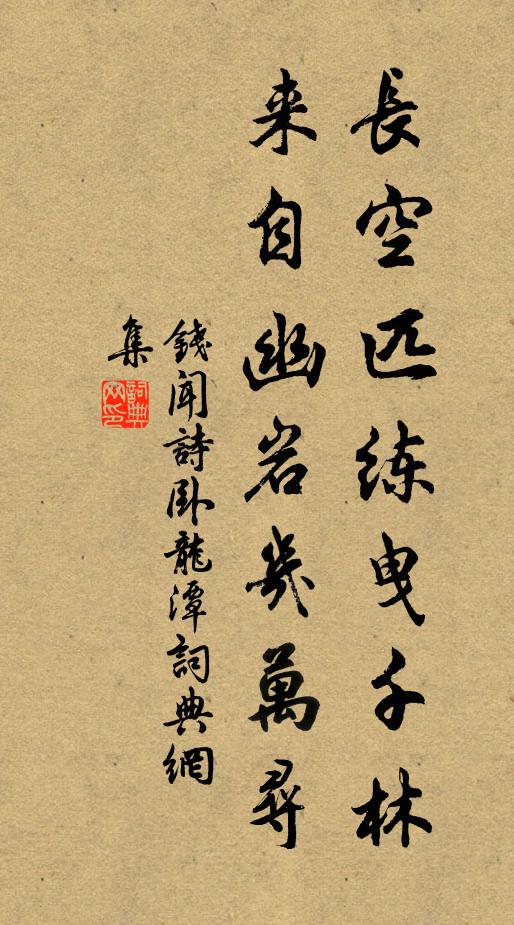 長空匹练曳千林
来自幽岩幾萬尋
錢聞詩卧龍潭詞典網
集
詞典
网印